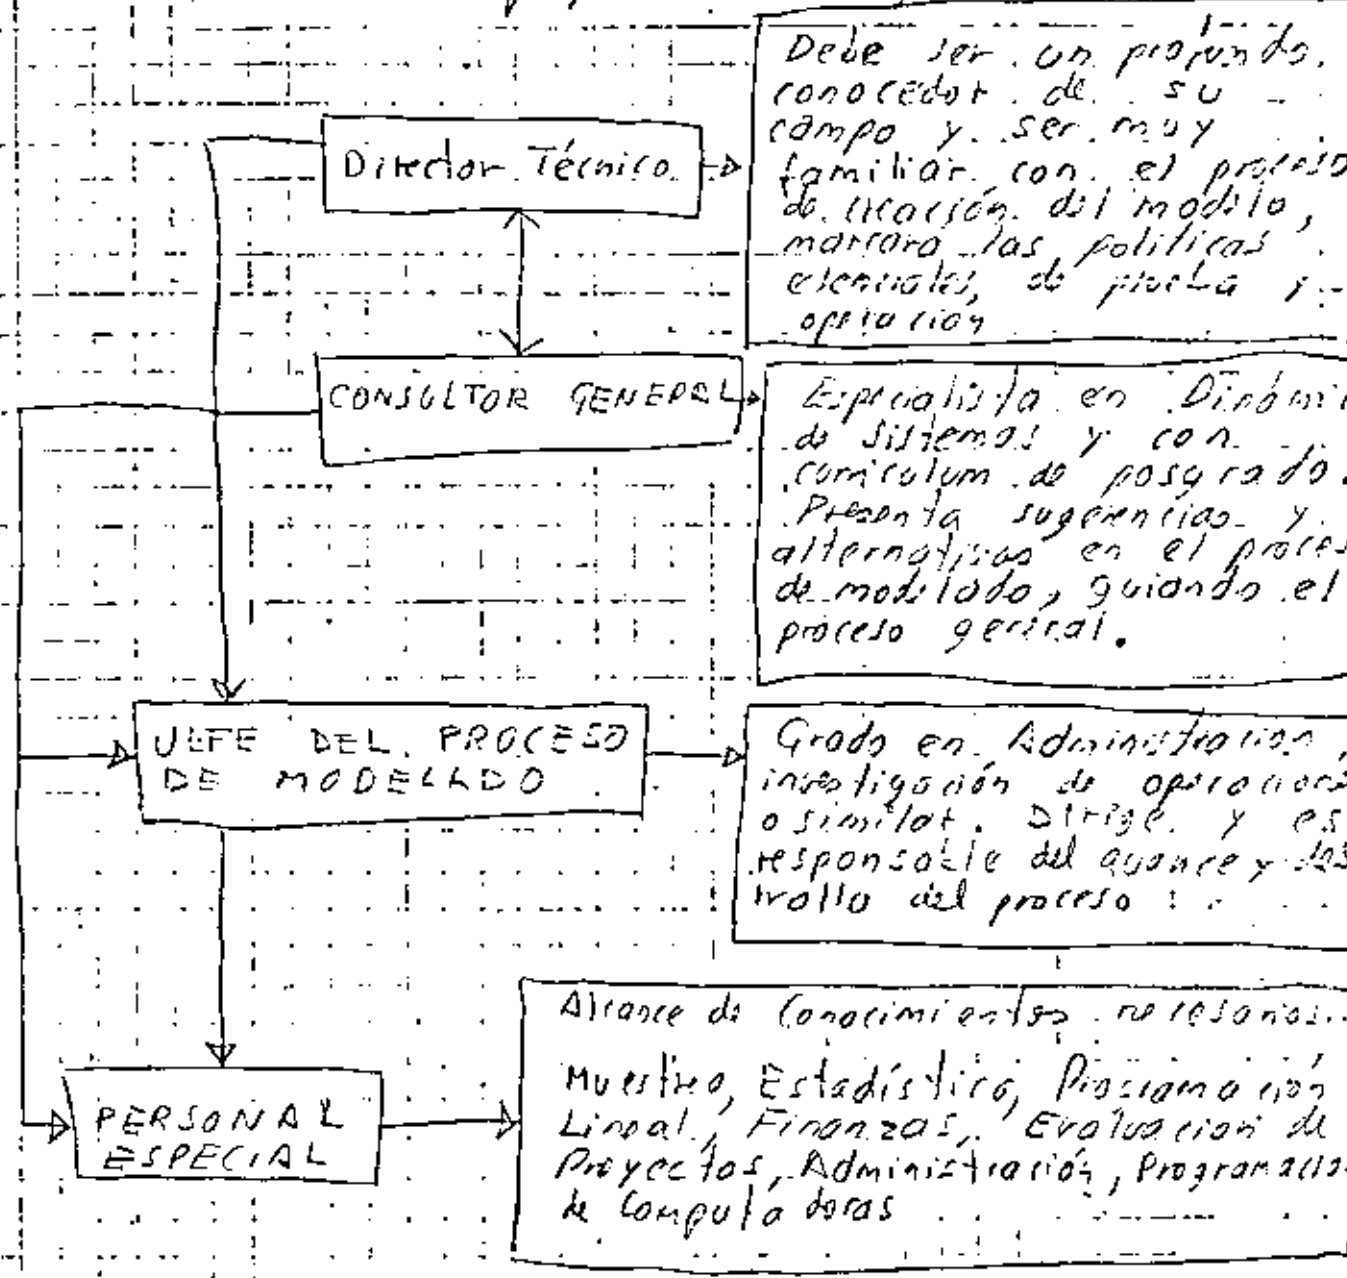 Director Técnico
Debe ser un profundo
conocedor de su
campo y ser muy
familiar con el proceso
de creación del modelo,
marcará las políticas
esenciales, de prueba y
operación
CONSULTOR GENERAL
Especialista en Dinámic
de sistemas y con
curriculum de posgrado.
Presenta sugerencias y
alternativas en el proces
de modelado, guiando el
proceso general.
JEFE DEL PROCESO
DE MODELADO
Grado en Administración,
investigación de operaciones
o similar. Dirige y es
responsable del avance y des
rrollo del proceso
PERSONAL
ESPECIAL
Alcance de Conocimientos necesarios.
Muestreo, Estadística, Programación
Lineal, Finanzas, Evaluación de
Proyectos, Administración, Programación
de Computadoras